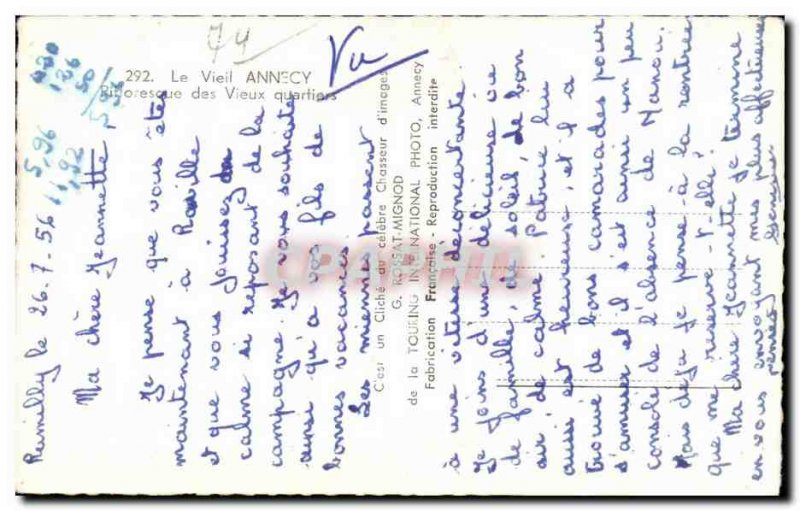 74
Vu
292. Le Vieil ANNECY
Pittoresque des Vieux quartiers
C'est un Cliché du célèbre Chasseur d'images
G. ROSSAT-MIGNOD
de la TOURING INTERNATIONAL PHOTO, Annecy
Fabrication Française - Reproduction interdite
CPARAMA
Rumilly le 26.7.56
Ma chère Jeannette,
Je pense que vous êtes
maintenant à
et que vous jouissez du
calme si reposant de la
campagne. Je vous souhaite
ainsi qu'à vos fils de
bonnes vacances.
Les miennes passent
à une vitesse déconcertante
Je jouis d'une délicieuse vie
de famille, de soleil, de bon
air, de calme. Patrice lui
aussi est heureux, et il a
trouvé de bons camarades pour
s'amuser et il s'est ainsi un peu
consolé de l'absence de Manou.
Mais déjà je pense à la rentrée
que me réserve-t-elle!
Ma chère Jeannette je termine
en vous envoyant mes plus affectueuses
pensées